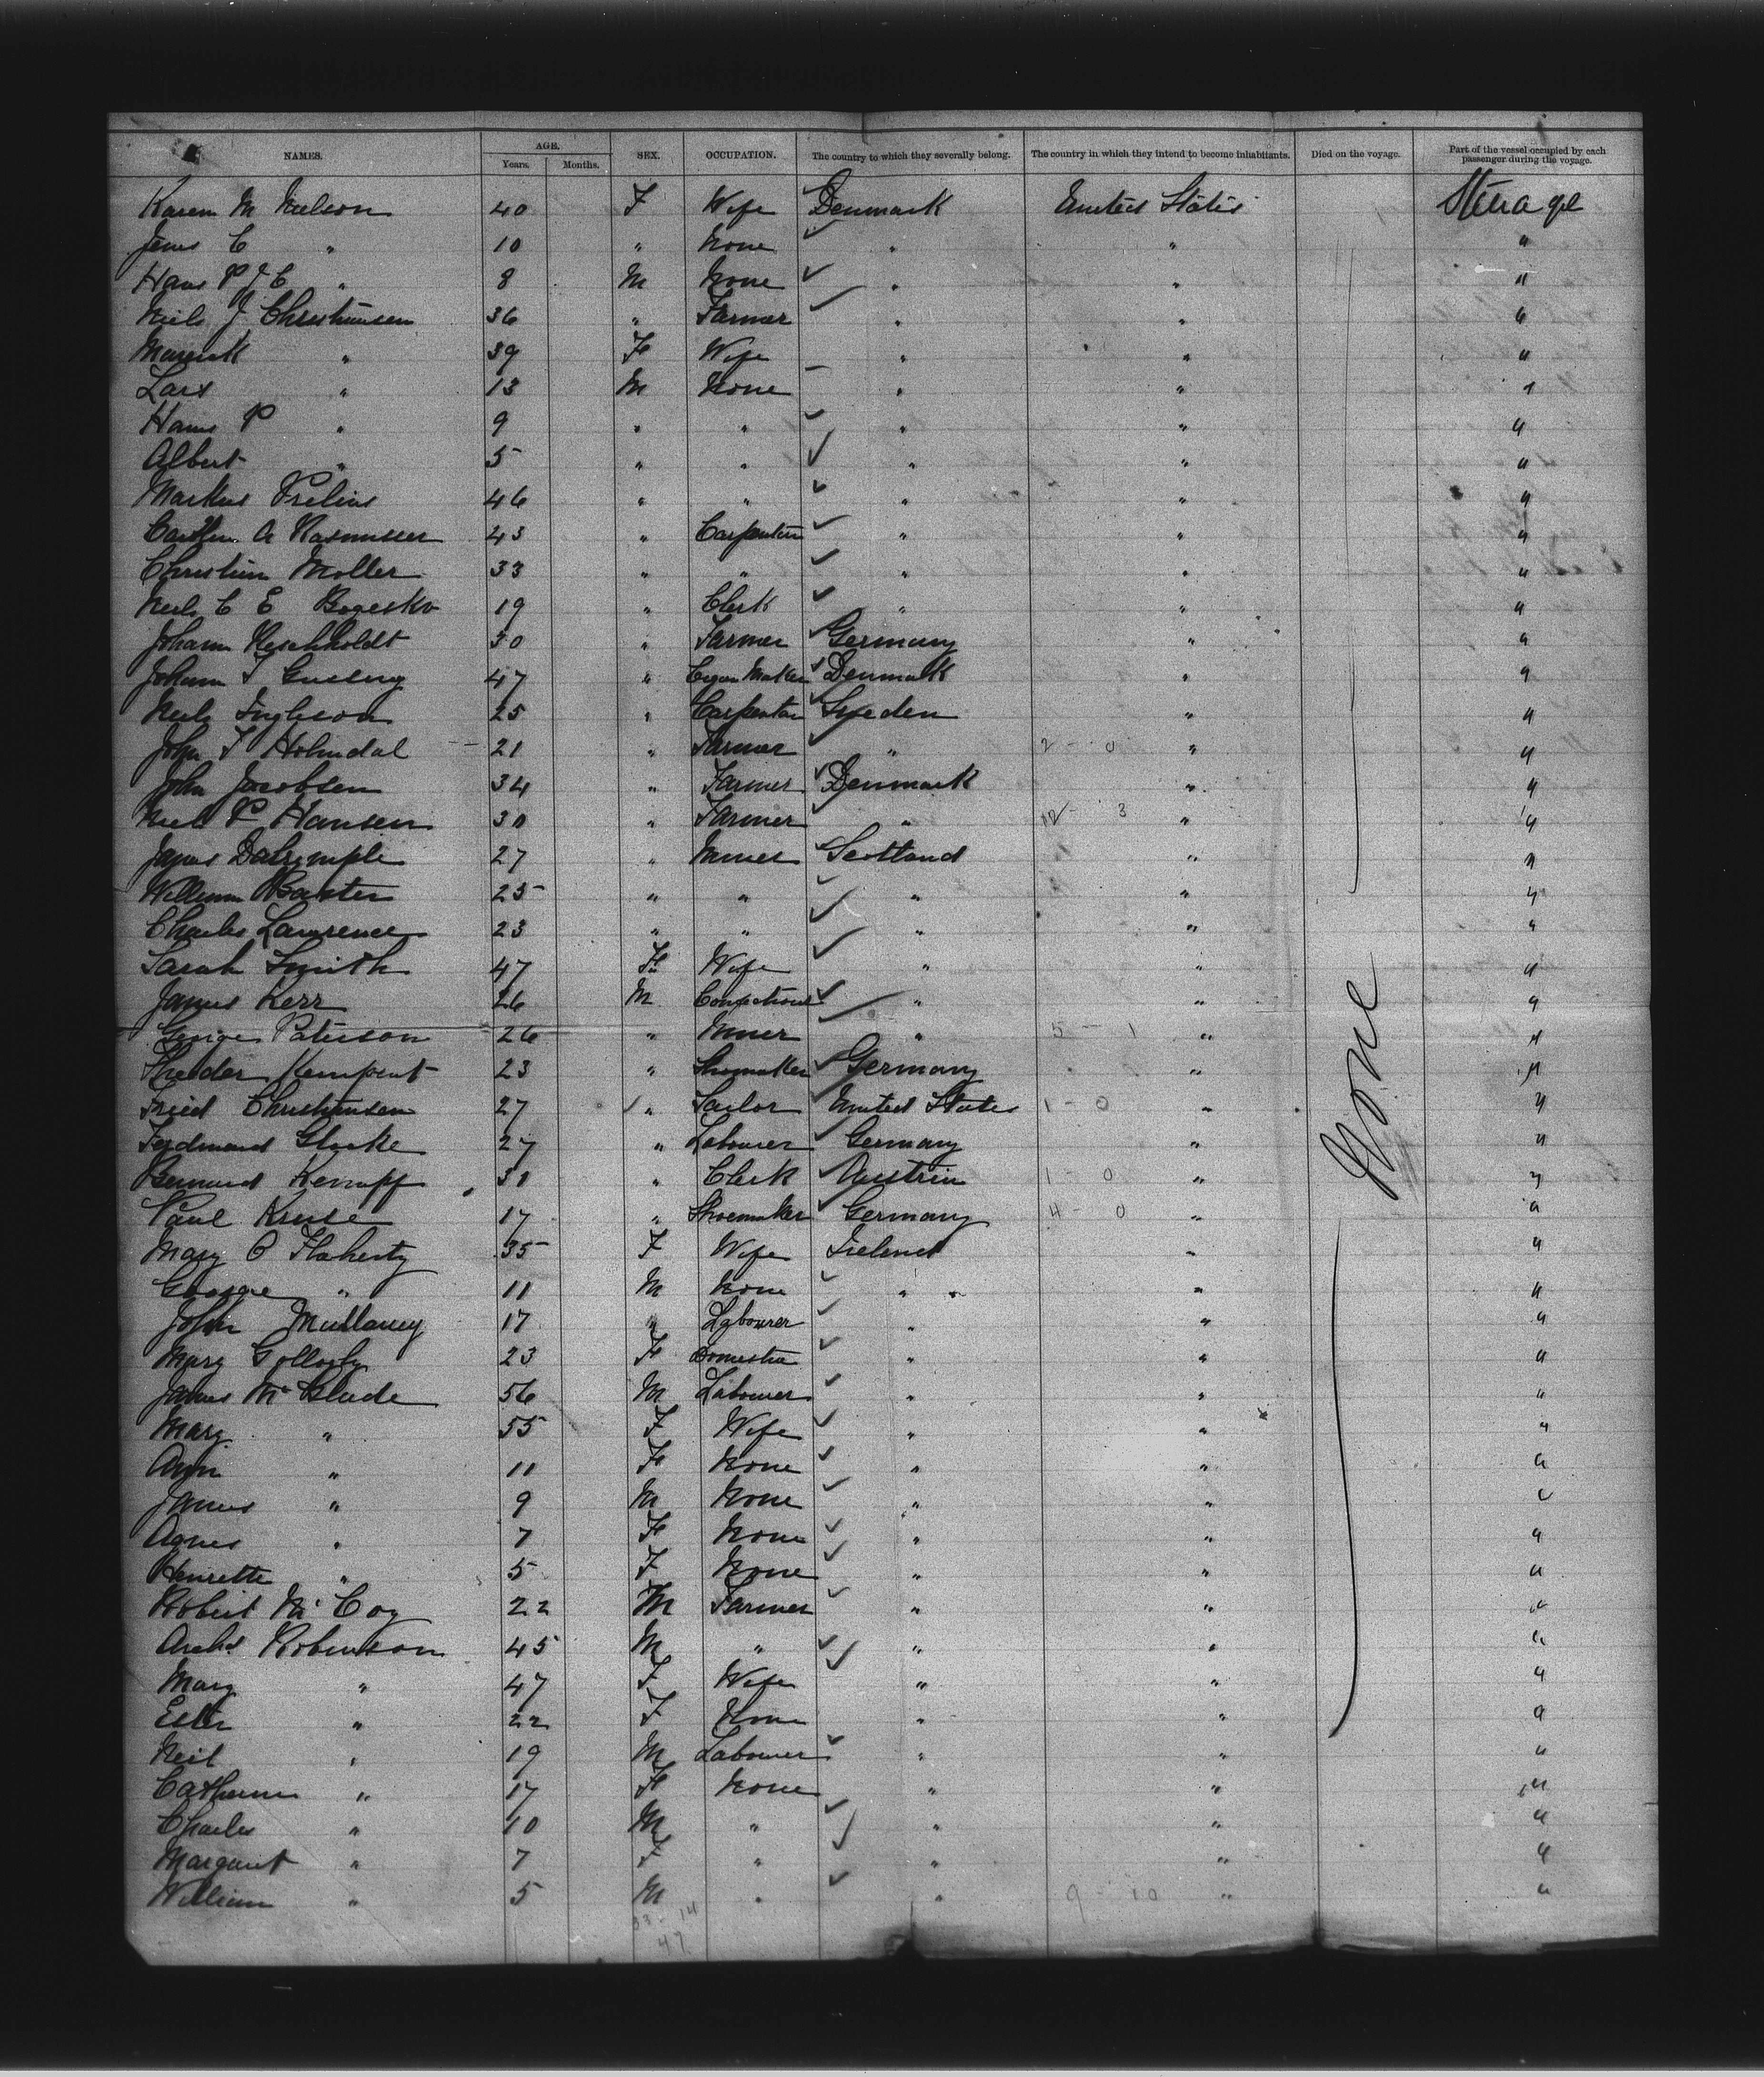 NAMES. AGE. SEX. OCCUPATION. The country to which they severally belong. The country in which they intend to become inhabitants. Died on the voyage. Part of the vessel occupied by each passenger during the voyage.
Years. Months.
Karen M Nielson 40 F Wife Denmark United States Steerage
Jens C " 10 " None " " "
Hans P J C " 8 M None " " "
Niels J Christiansen 36 " Farmer " " "
" 39 F Wife " " "
Lars " 13 M None " " "
Hans P " 9 " " " " "
Albert " 5 " " " " "
Markus 46 " " " " "
A Rasmussen 43 " Carpenter " " "
Christian Moller 33 " " " " "
Niels C E 19 " Clerk " " "
Johann 30 " Farmer Germany " "
Johann 47 " Cigar Maker Denmark " "
Niels 25 " Carpenter Sweden " "
John F Holmdal 21 " Farmer " 2 - 0 " "
John Jacobsen 34 " Farmer Denmark " "
Niels P Hansen 30 " Farmer " 12 - 3 " "
James Dalrymple 27 " Miner Scotland " "
William Baxter 25 " " " " "
Charles Lawrence 23 " " " " "
Sarah Smith 47 F Wife " " "
James Kerr 26 M " " "
George Paterson 26 " Miner " 5 - 1 " "
23 " Shomaker Germany " "
Fried Christiansen 27 " Sailor United States 1 - 0 " "
Ferdinand 27 " Labourer Germany " "
31 " Clerk Austria 1 - 0 " "
Paul Kruse 17 " Shoemaker Germany 4 - 0 " "
Mary O Flaherty 35 F Wife Ireland " "
George " 11 M None " " "
John Mullaney 17 " Labourer " " "
Mary 23 F Domestic " " "
James 56 M Labourer " " "
Mary " 55 F Wife " " "
Ann " 11 F None " " "
James " 9 M None " " "
Agnes " 7 F None " " "
Henrette " 5 F None " " "
Robert Mc Coy 22 M Farmer " " "
Archd Robinson 45 M " " " "
Mary " 47 F Wife " " "
" 22 F None " " "
Neil " 19 M Labourer " " "
Catherine " 17 F None " " "
Charles " 10 M " " " "
Margaret " 7 F " " " "
William " 5 M " " 9 - 10 " "
None
33 - 14
47